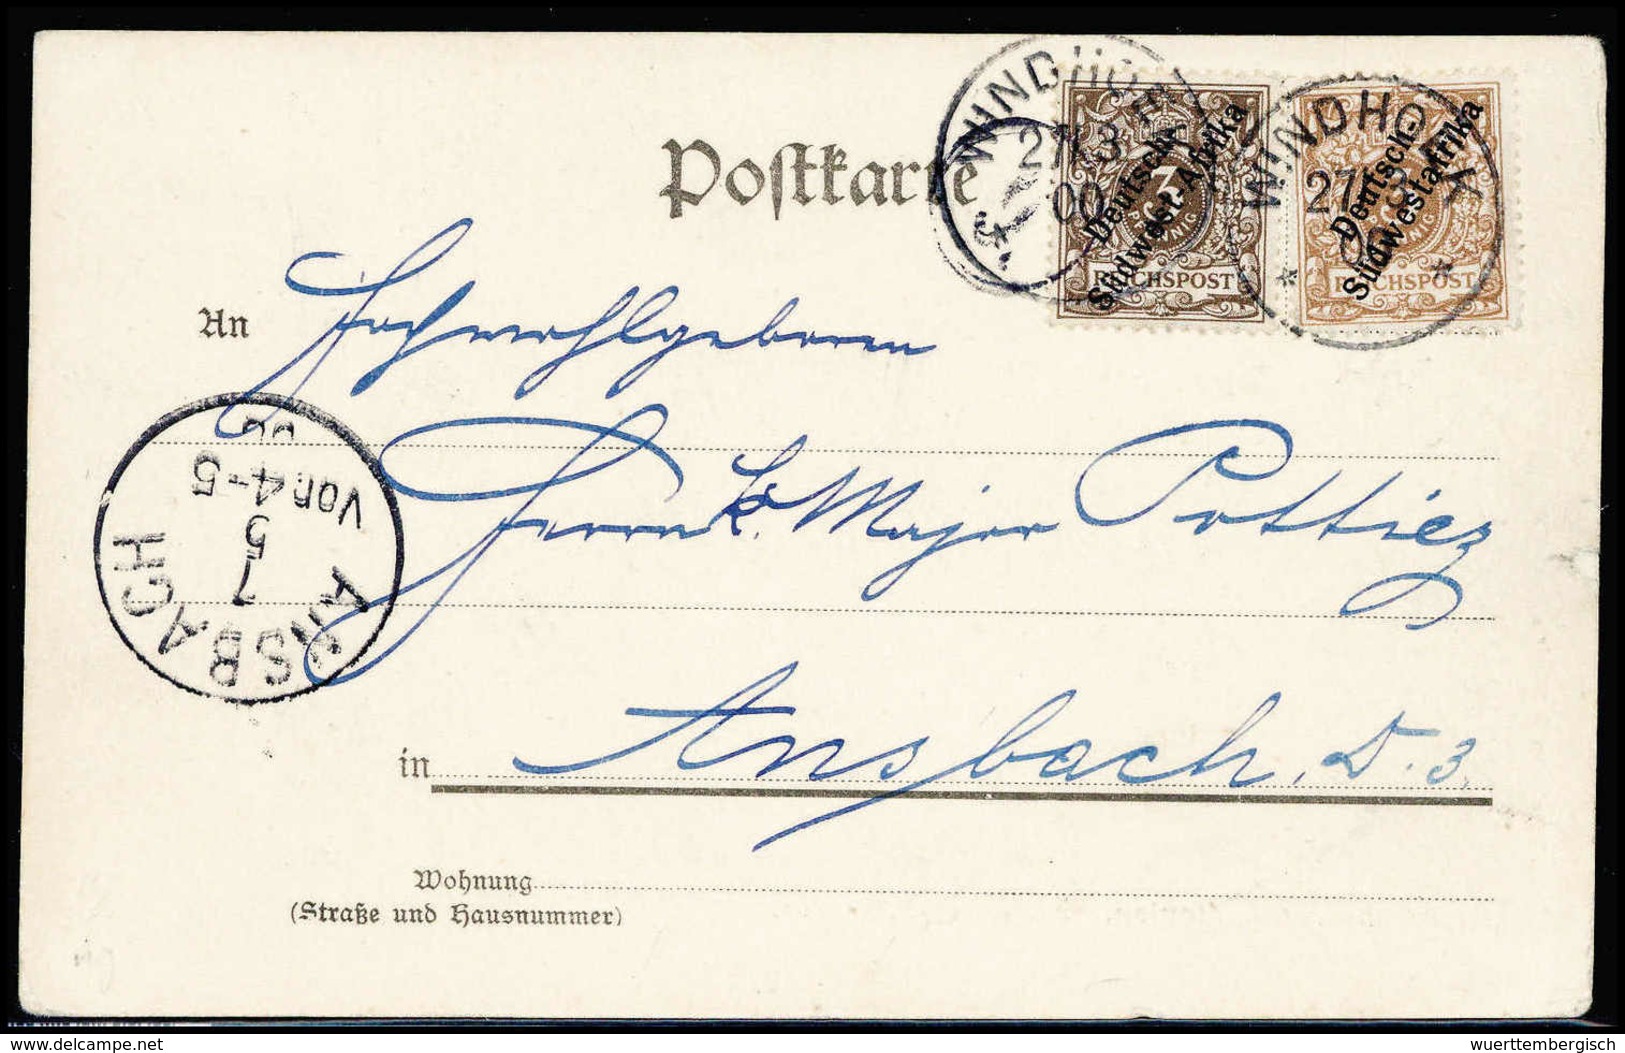 Postkarte
WINDHOEK
27.3.
00
WINDHOEK
27.3.
00
Deutsch-
Südwest-Afrika
3
PFENNIG
REICHSPOST
Deutsch-
Südwestafrika
REICHSPOST
An
Hochwohlgeboren
Herrn k. Major Pottiez
in Ansbach. D. 3.
ANSBACH
7
5
Vor.4-5
00
Wohnung
(Straße und Hausnummer)
delcampe.net
wuerttembergisch